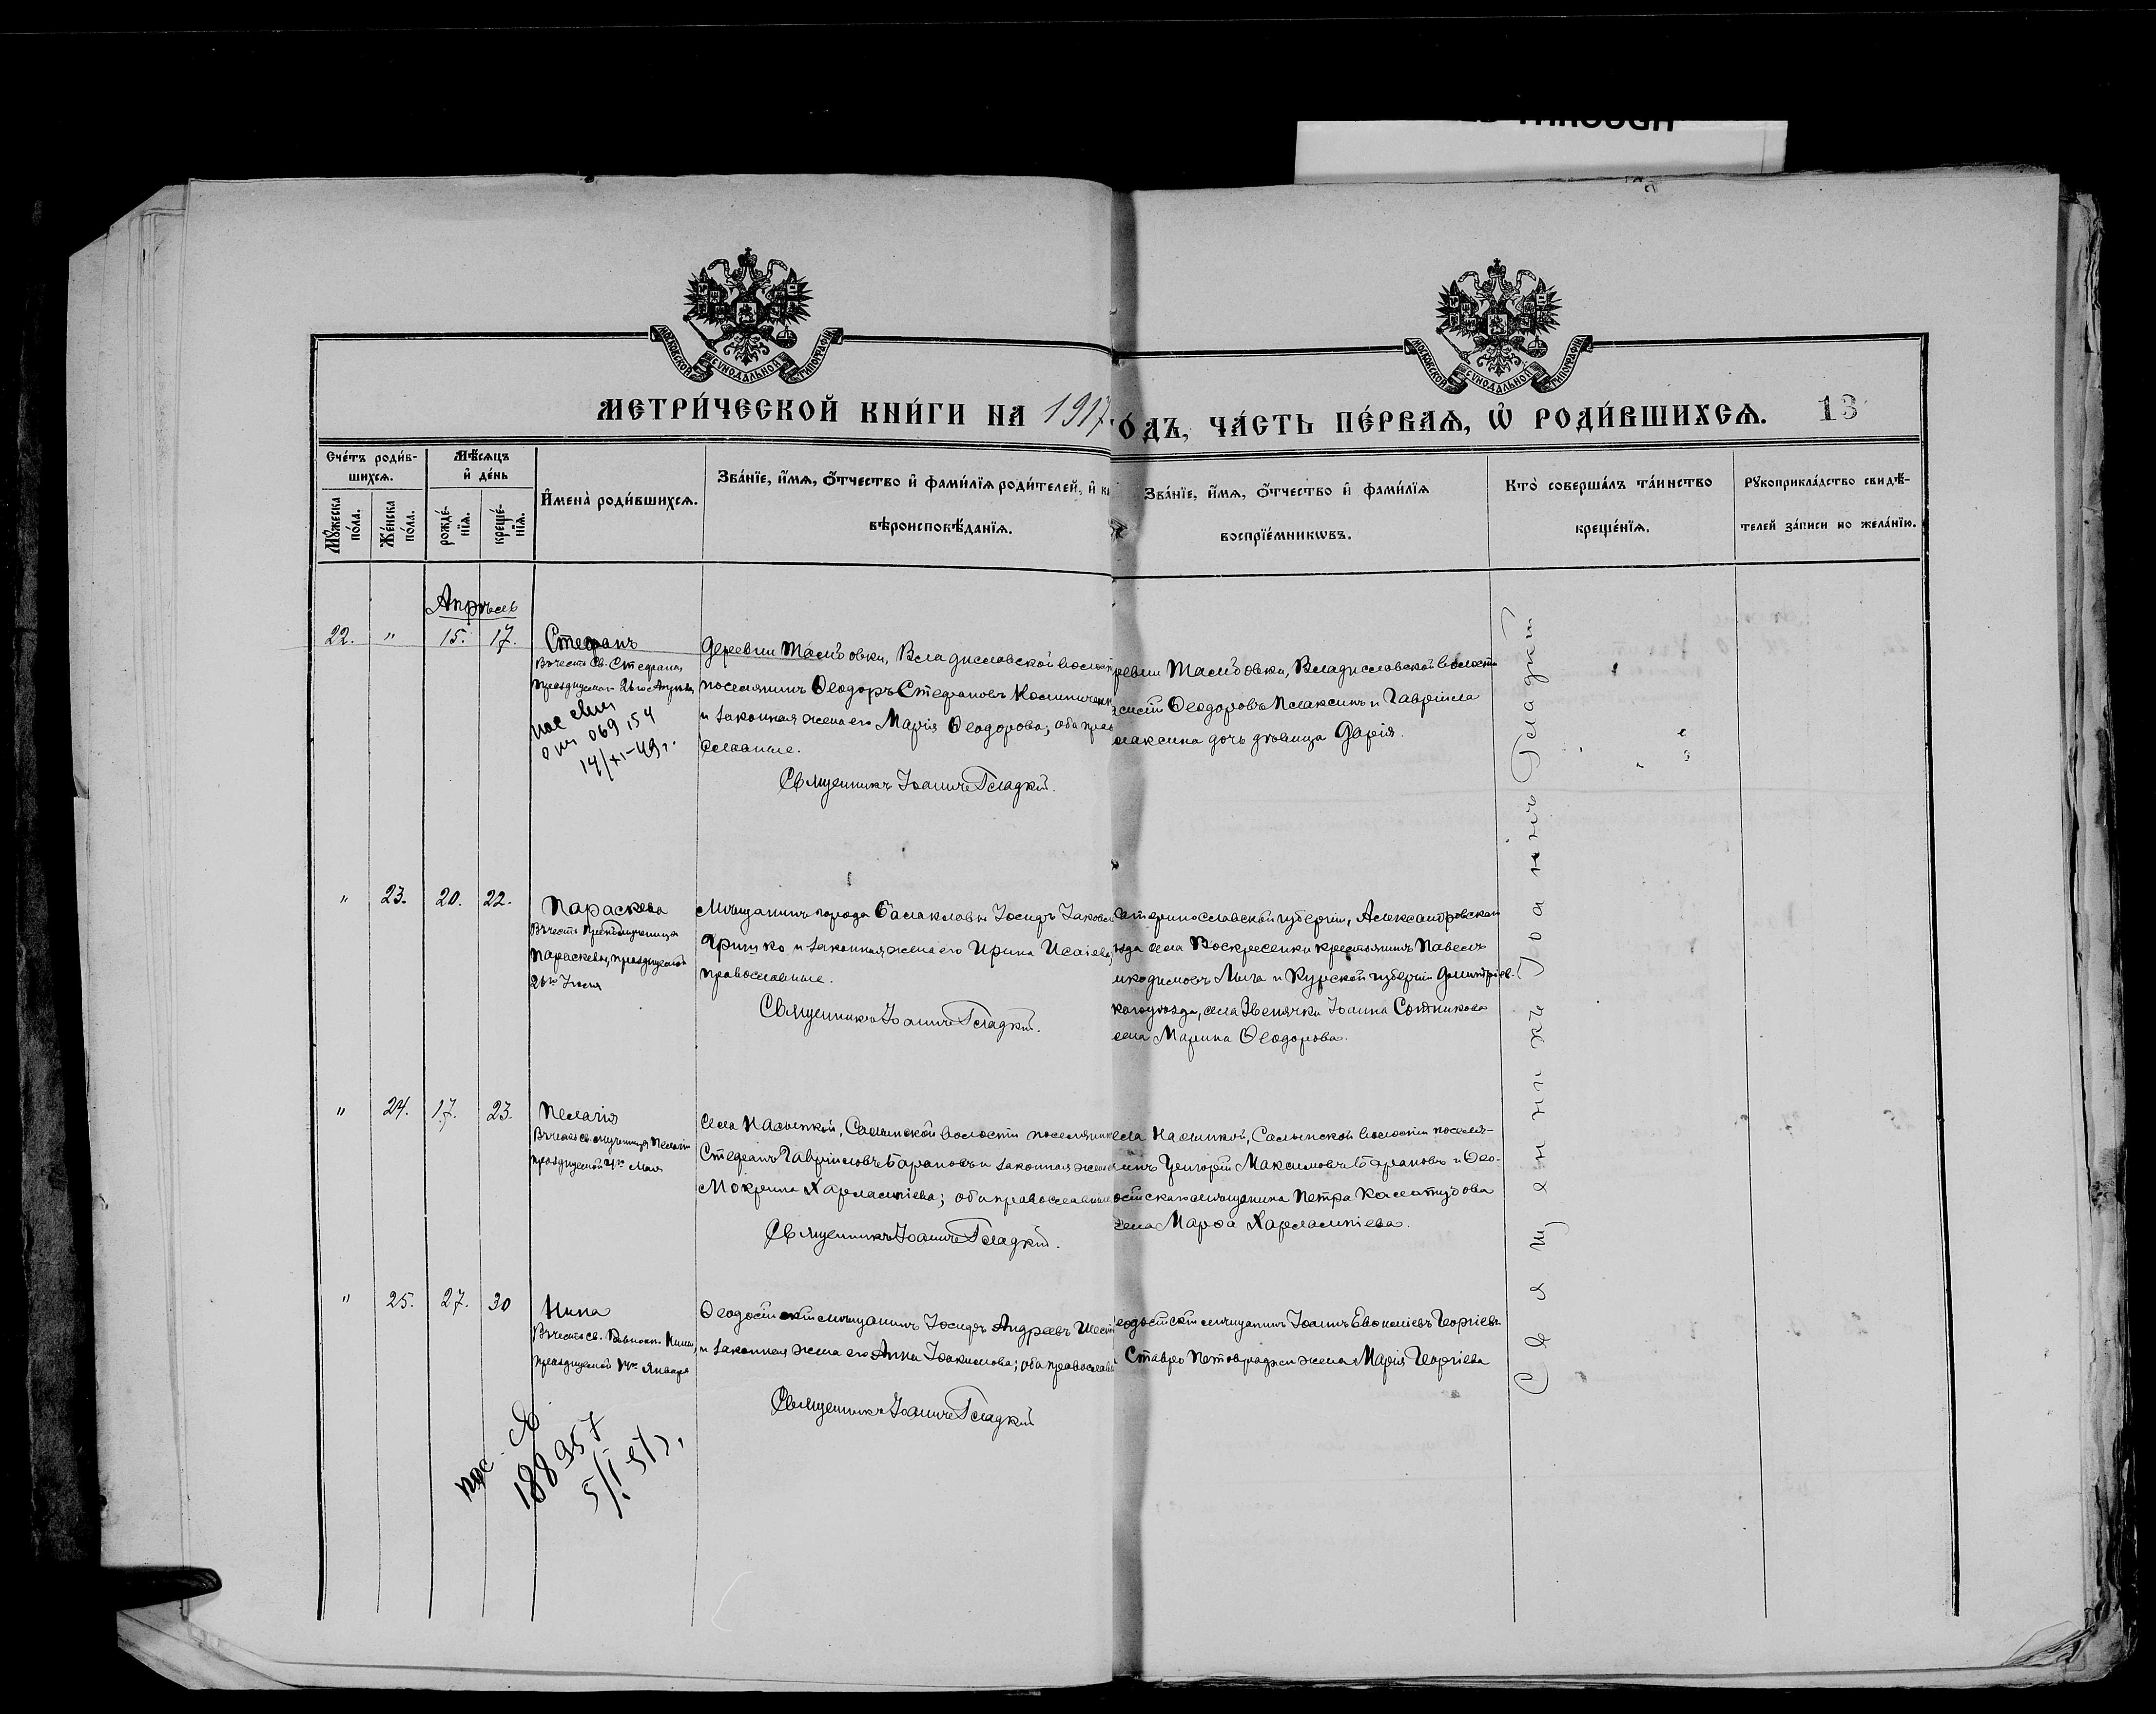 THROUGH
МОСКОВСКОЙ СѴНОДАЛЬНОЙ ТИПОГРАФІИ
МОСКОВСКОЙ СѴНОДАЛЬНОЙ ТИПОГРАФІИ
МЕТРИ́ЧЕСКОЙ КНИ́ГИ НА 1917
О́ДЪ, ЧА́СТЬ ПЕ́РВАѦ, Ѡ҆ РОДИ́ВШИХСѦ. 13
Сче́тъ роди́в-
шихсѧ.
Мꙋ́жеска по́ла.
Же́нска по́ла.
Мѣ́сѧцъ
и҆ де́нь
рожде́-нїѧ.
креще́-нїѧ.
И҆мена̀ роди́вшихсѧ.
Зва́нїе, и҆́мѧ, ѻ҆́тчество и҆ фами́лїѧ роди́телей, и҆
вѣроисповѣ́данїѧ.
Зва́нїе, и҆́мѧ, ѻ҆́тчество и҆ фами́лїѧ
воспрїе́мникѡвъ.
Кто̀ соверша́лъ та́инство
креще́нїѧ.
Рꙋкоприкла́дство свидѣ́-
телей за́писи по жела́нїю.
Апрѣль
22. " 15. 17. Стефанъ
Въ честь Св. Стефана,
празднуемаго 26го Апрѣля
пас
069154
14/XI-49 г.
Деревни Владиславской волост
поселянинъ Ѳеодоръ Стефановъ
и законная жена его Марія Ѳеодорова; оба прав
славные.
Священникъ Іоаннъ Гладкій.
ревни Владиславской волости
Ѳеодоровъ и Гавріила
дочь дѣвица Дарія.
" 23. 20. 22. Параскева
Въ честь Преподмученицы
Параскевы, празднуемой
26го Іюля
Мѣщанинъ города Балаклавы Іосифъ Іаковл
Грицко и законная жена его Ирина Исаіева,
православные.
Священникъ Іоаннъ Гладкій.
атеринославской губерніи, Александровскаго
ѣзда села Воскресенки крестьянинъ Павелъ
икодимовъ Мига и Курской губерніи Димитріев-
каго уѣзда, села Звенячки Іоанна Сотникова
ена Марина Ѳеодорова.
" 24. 17. 23. Пелагія
Въ честь св. мученицы Пелагіи
празднуемой 4го Мая
Села Насыпкой, Салынской волости поселянинъ
Стефанъ Гавріиловъ Барановъ и законная жена
Мокрина Харлампіева; оба православные
Священникъ Іоаннъ Гладкій.
ела Насыпкой, Салынской волости поселя-
инъ Григорій Максимовъ Барановъ и Ѳео-
осійскаго мѣщанина Петра
жена Марѳа Харлампіева.
" 25. 27. 30 Нина
Въ честь св. Равноап. Нины,
празднуемой 14го Января
пас
188957
5/I 51 г.
Ѳеодосійскій мѣщанинъ Іосифъ Андреевъ
и законная жена его Анна Іоакимова; оба православ
Священникъ Іоаннъ Гладкій
еодосійскій мѣщанинъ Іоаннъ Георгіевъ
Ставро жена Марія Георгіева
Священникъ Іоаннъ Гладкій